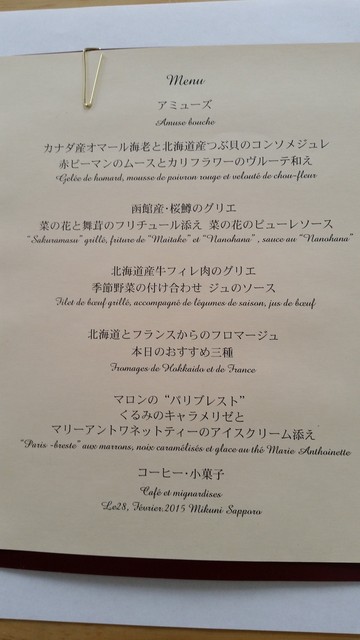 Menu
アミューズ
Amuse bouche
カナダ産オマール海老と北海道産つぶ貝のコンソメジュレ
赤ピーマンのムースとカリフラワーのヴルーテ和え
Gelée de homard, mousse de poivron rouge et velouté de chou-fleur
函館産・桜鱒のグリエ
菜の花と舞茸のフリチュール添え 菜の花のピューレソース
"Sakuramasu" grillé, friture de "Maitake" et "Nanohana" , sauce au "Nanohana"
北海道産牛フィレ肉のグリエ
季節野菜の付け合わせ ジュのソース
Filet de bœuf grillé, accompagné de légumes de saison, jus de bœuf
北海道とフランスからのフロマージュ
本日のおすすめ三種
Fromages de Hokkaido et de France
マロンの "パリブレスト"
くるみのキャラメリゼと
マリーアントワネットティーのアイスクリーム添え
"Paris -breste" aux marrons, noix caramélisés et glace au thé Marie Anthoinette
コーヒー・小菓子
Café et mignardises
Le28, Février.2015 Mikuni Sapporo